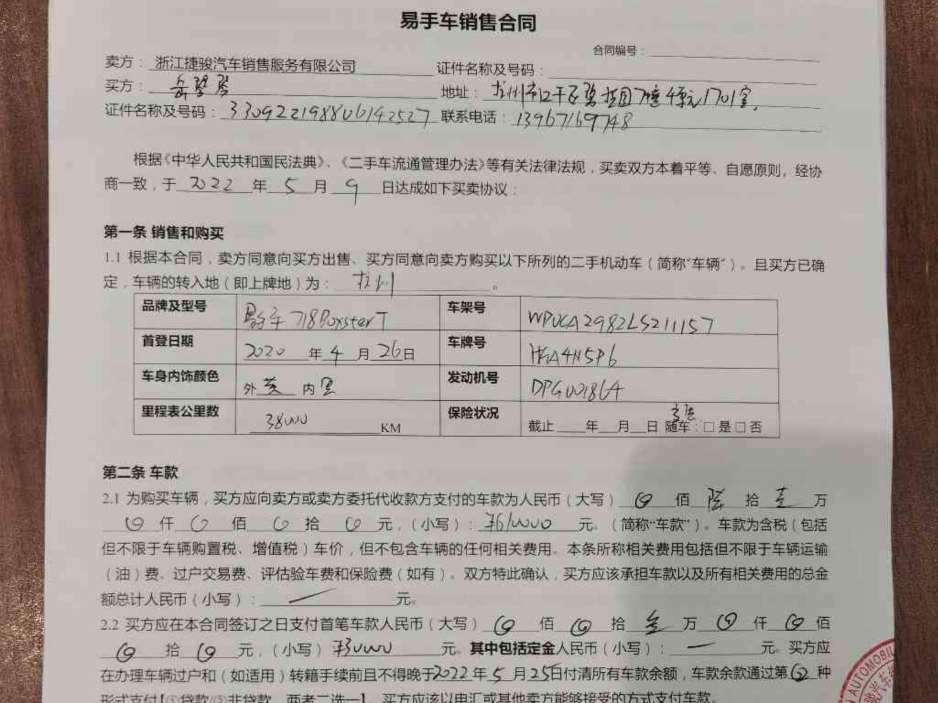 易手车销售合同
合同编号：
卖方： 浙江捷骏汽车销售服务有限公司 证件名称及号码：
买方： 地址：
证件名称及号码： 330922198806142527 联系电话： 13967169748
根据《中华人民共和国民法典》、《二手车流通管理办法》等有关法律法规，买卖双方本着平等、自愿原则，经协
商一致，于 2022 年 5 月 9 日达成如下买卖协议：
第一条 销售和购买
1.1 根据本合同，卖方同意向买方出售、买方同意向卖方购买以下所列的二手机动车（简称“车辆”）。且买方已确
定，车辆的转入地（即上牌地）为： 杭州 。
品牌及型号 718 Boxster T 车架号 WPUCA2982LS211157
首登日期 2020 年 4 月 26 日 车牌号
车身内饰颜色 外 内 黑 发动机号
里程表公里数 38000 KM 保险状况 截止 年 月 日 随车：□是□否
第二条 车款
2.1 为购买车辆，买方应向卖方或卖方委托代收款方支付的车款为人民币（大写） 佰 陆 拾 壹 万
仟 佰 拾 元，（小写）： ¥610000 元。（简称“车款”）。车款为含税（包括
但不限于车辆购置税、增值税）车价，但不包含车辆的任何相关费用。本条所称相关费用包括但不限于车辆运输
（油）费、过户交易费、评估验车费和保险费（如有）。双方特此确认，买方应该承担车款以及所有相关费用的总金
额总计人民币（小写）： 元。
2.2 买方应在本合同签订之日支付首笔车款人民币（大写） 佰 拾 叁 万 仟 佰
拾 元，（小写） ¥30000 元。其中包括定金人民币（小写）： 元。买方应
在办理车辆过户和（如适用）转籍手续前且不得晚于2022年 5 月 25日付清所有车款余额，车款余款通过第 ② 种
形式支付【①贷款/②非贷款，两者二选一】，买方应该以电汇或其他卖方能够接受的方式支付车款。
AUTOMOBIL